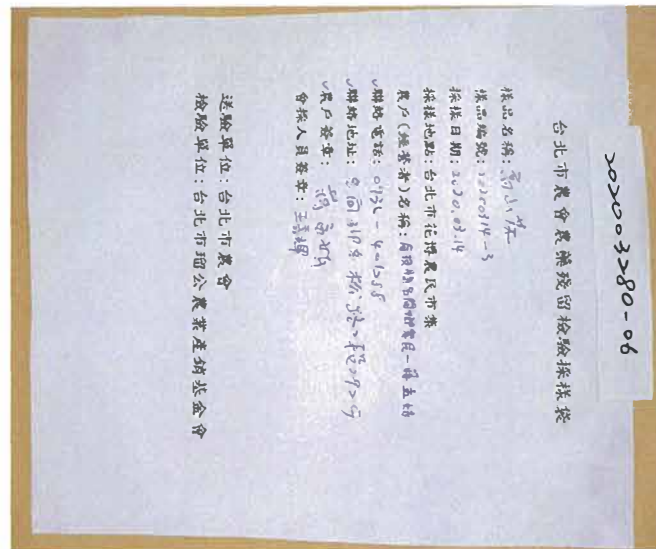 202003280-06
台北市農會農藥殘留檢驗採樣袋
樣品名稱：高山茶
樣品編號：20200314-3
採樣日期：2020.03.14
採樣地點：台北市花博農民市集
農戶(經營者)名稱：
聯絡電話：0932-401258
聯絡地址：名間鄉
農戶簽章：
會採人員簽章：
送驗單位：台北市農會
檢驗單位：台北市瑠公農業產銷基金會